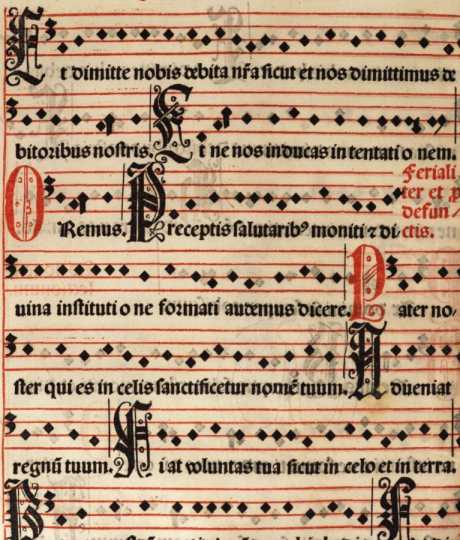 Et dimitte nobis debita nr̃a sicut et nos dimittimus de
bitoribus nostris. Et ne nos inducas in tentati o nem.
Feriali
ter et ꝑ
defun/
ctis.
ORemus. Preceptis salutarib⁹ moniti ⁊ di
uina instituti o ne formati audemus dicere. Pater no/
ster qui es in celis sanctificetur nomẽ tuum. Adueniat
regnũ tuum. Fiat voluntas tua sicut in celo et in terra.